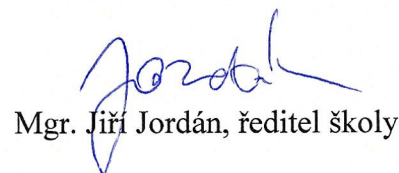 Jordán
Mgr. Jiří Jordán, ředitel školy